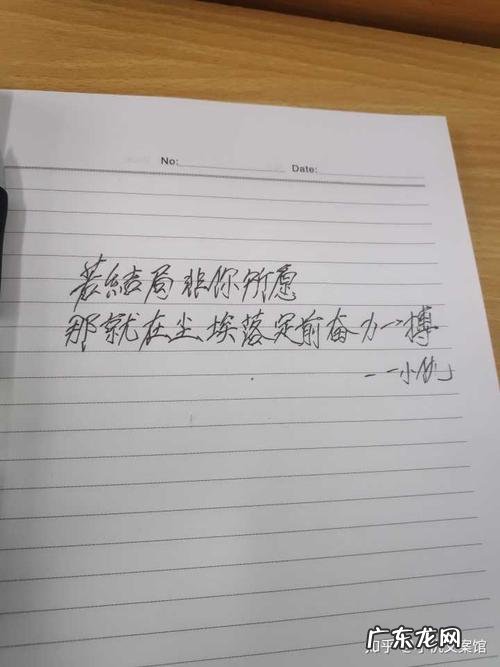 No:
Date:
若结局非你所愿
那就在尘埃落定前奋力一搏
——小仇
知乎 @小仇文案馆
广东龙网